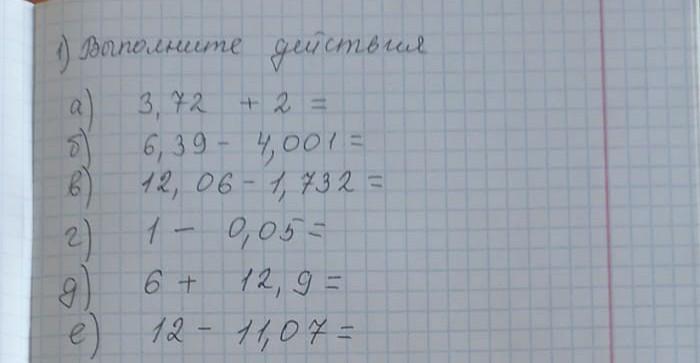 1) Выполните действия
а) 3,72 + 2 =
б) 6,39 - 4,001 =
в) 12,06 - 1,732 =
г) 1 - 0,05 =
д) 6 + 12,9 =
е) 12 - 11,07 =